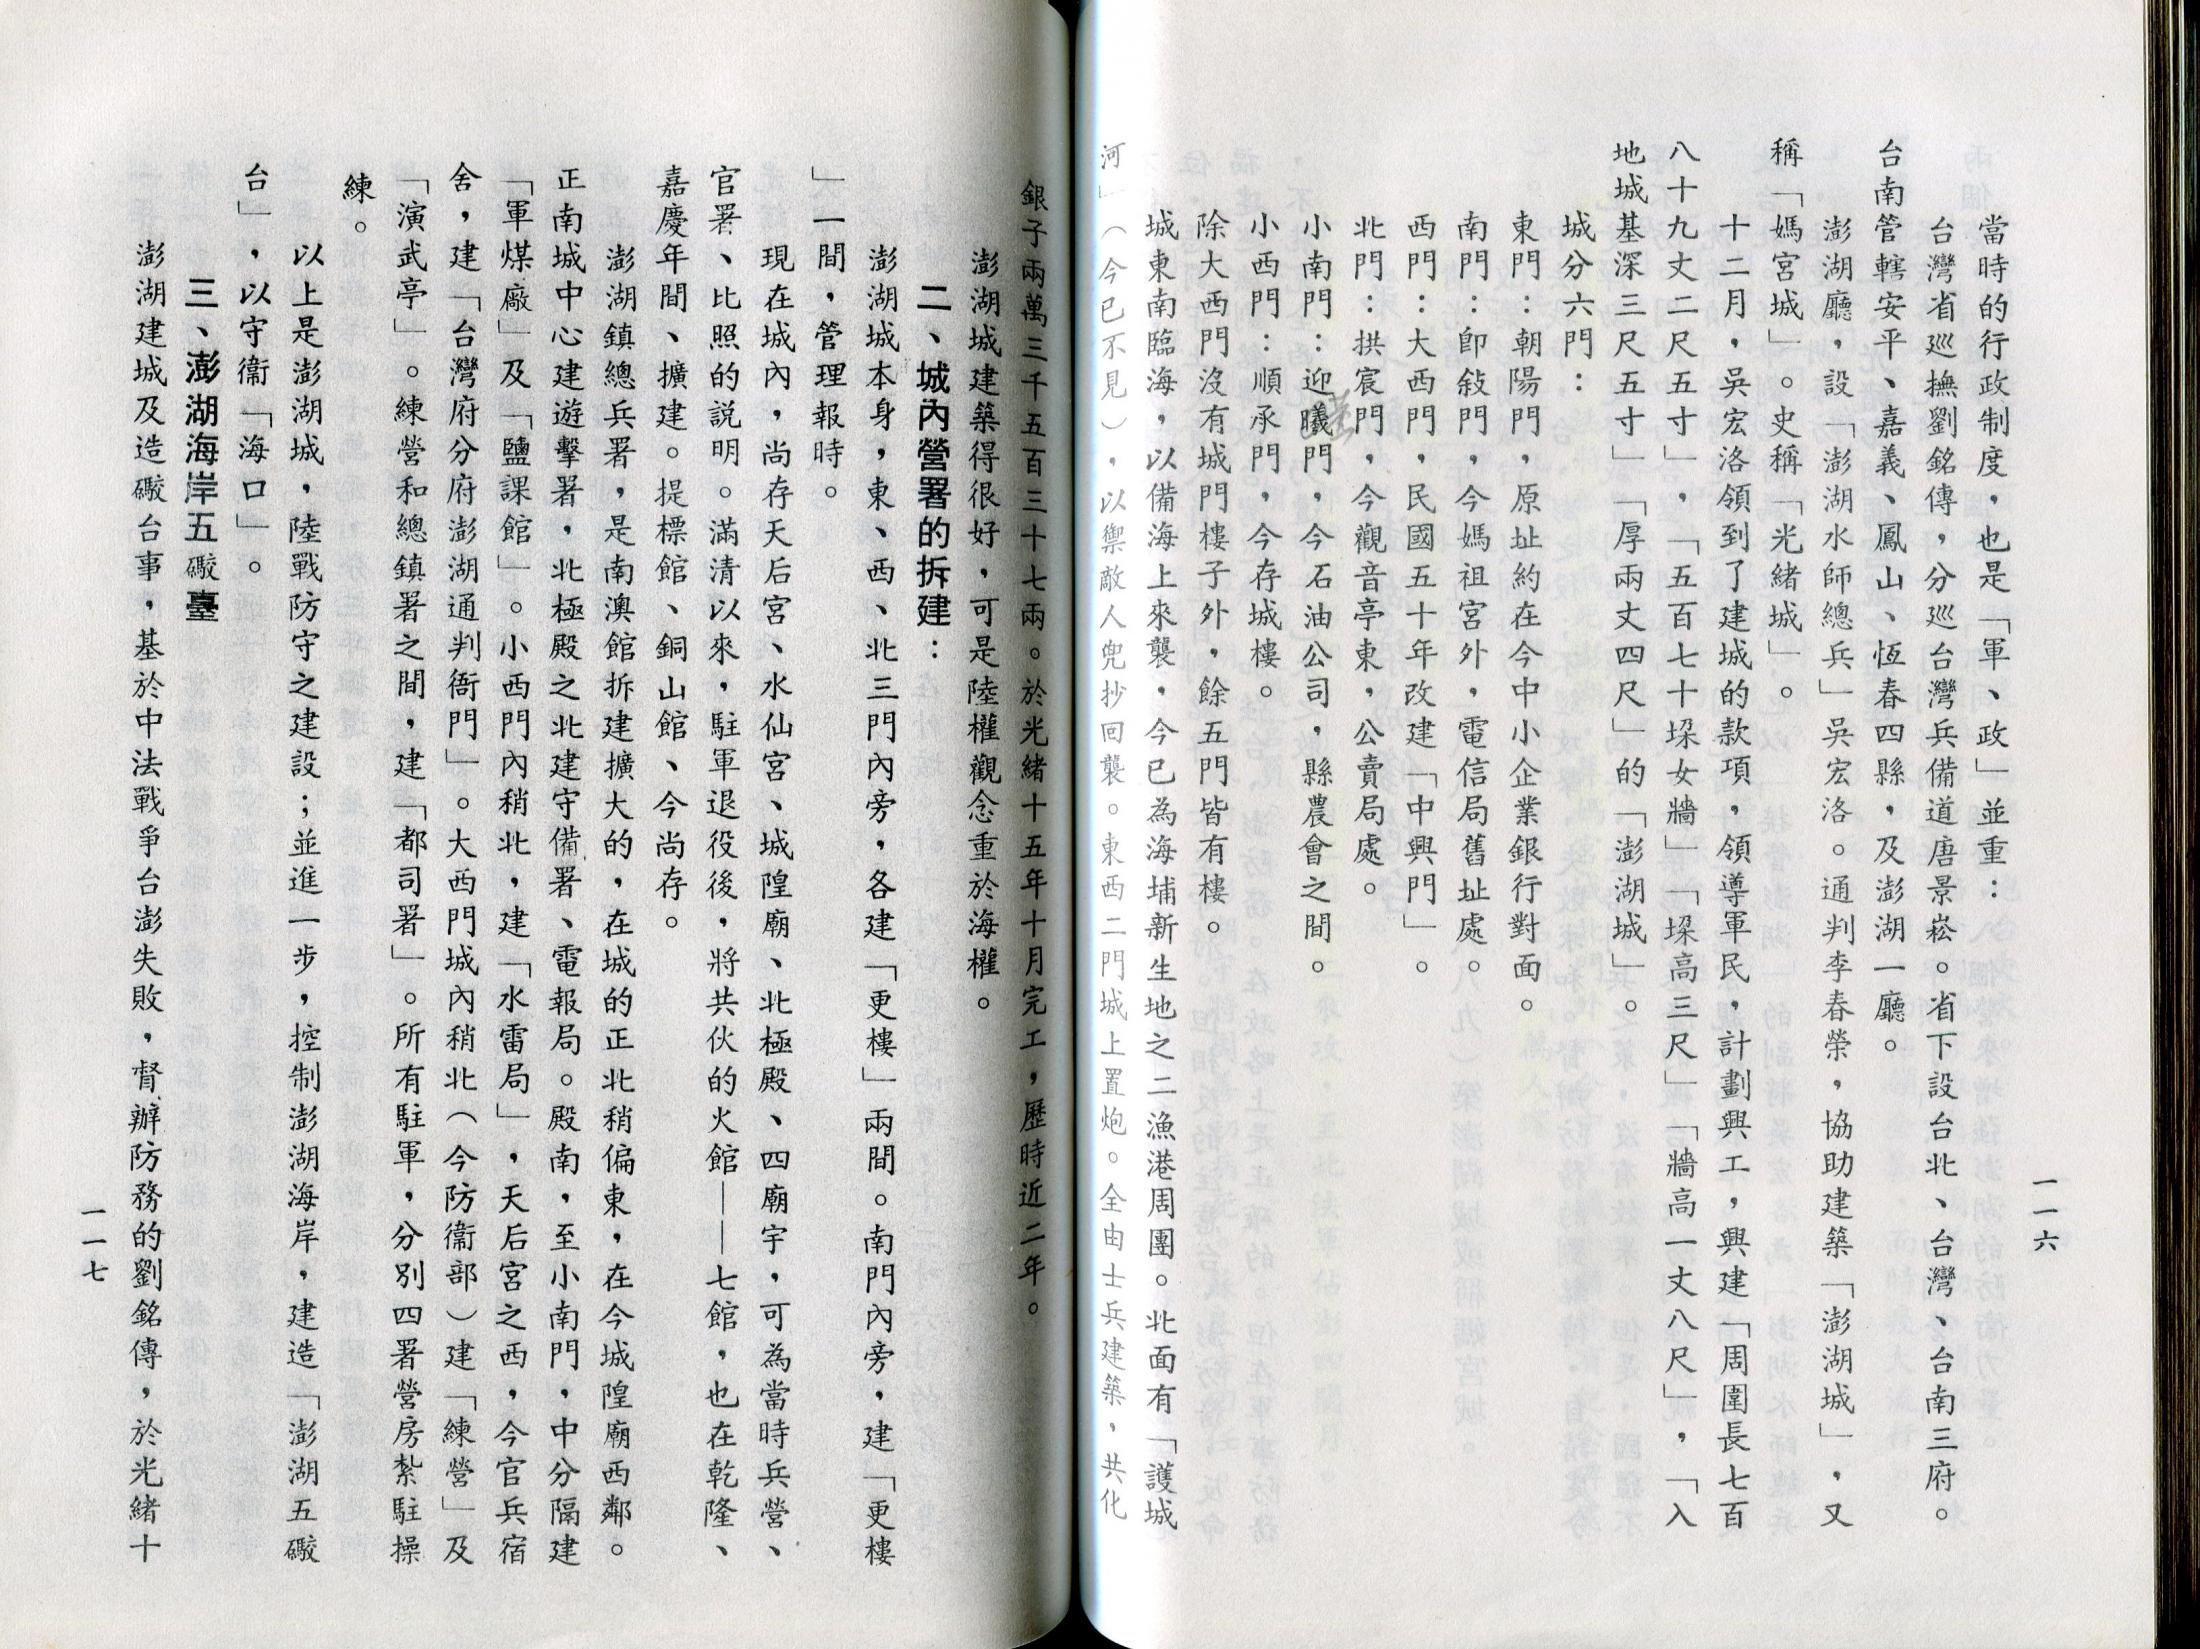 一一六
當時的行政制度，也是「軍、政」並重：
台灣省巡撫劉銘傳，分巡台灣兵備道唐景崧。省下設台北、台灣、台南三府。
台南管轄安平、嘉義、鳳山、恆春四縣，及澎湖一廳。
澎湖廳，設「澎湖水師總兵」吳宏洛。通判李春榮，協助建築「澎湖城」，又
稱「媽宮城」。史稱「光緒城」。
十二月，吳宏洛領到了建城的款項，領導軍民，計劃興工，興建「周圍長七百
八十九丈二尺五寸」，「五百七十垜女牆」「垜高三尺」「牆高一丈八尺」，「入
地城基深三尺五寸」「厚兩丈四尺」的「澎湖城」。
城分六門：
東門：朝陽門，原址約在今中小企業銀行對面。
南門：即敍門，今媽祖宮外，電信局舊址處。
西門：大西門，民國五十年改建「中興門」。
北門：拱宸門，今觀音亭東，公賣局處。
小南門：迎曦門，今石油公司，縣農會之間。
小西門：順承門，今存城樓。
除大西門沒有城門樓子外，餘五門皆有樓。
城東南臨海，以備海上來襲，今已為海埔新生地之二漁港周團。北面有「護城
河」（今已不見），以禦敵人兜抄回襲。東西二門城上置炮。全由士兵建築，共化
銀子兩萬三千五百三十七兩。於光緒十五年十月完工，歷時近二年。
澎湖城建築得很好，可是陸權觀念重於海權。
二、城內營署的拆建：
澎湖城本身，東、西、北三門內旁，各建「更樓」兩間。南門內旁，建「更樓
」一間，管理報時。
現在城內，尚存天后宮、水仙宮、城隍廟、北極殿、四廟宇，可為當時兵營、
官署、比照的説明。滿清以來，駐軍退役後，將共伙的火館——七館，也在乾隆、
嘉慶年間、擴建。提標館、銅山館、今尚存。
澎湖鎮總兵署，是南澳館拆建擴大的，在城的正北稍偏東，在今城隍廟西鄰。
正南城中心建遊擊署，北極殿之北建守備署、電報局。殿南，至小南門，中分隔建
「軍煤廠」及「鹽課館」。小西門內稍北，建「水雷局」，天后宮之西，今官兵宿
舍，建「台灣府分府澎湖通判衙門」。大西門城內稍北（今防衞部）建「練營」及
「演武亭」。練營和總鎮署之間，建「都司署」。所有駐軍，分別四署營房紮駐操
練。
以上是澎湖城，陸戰防守之建設；並進一步，控制澎湖海岸，建造「澎湖五礮
台」，以守衞「海口」。
三、澎湖海岸五礮臺
澎湖建城及造礮台事，基於中法戰爭台澎失敗，督辦防務的劉銘傳，於光緒十
一一七